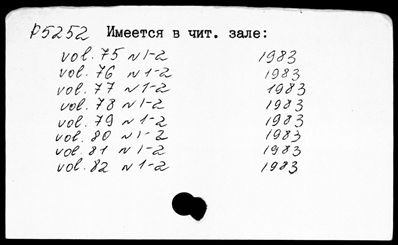 P5252 Имеется в чит. зале:
vol. 75 N 1-2 1983
vol. 76 N 1-2 1983
vol. 77 N 1-2 1983
vol. 78 N 1-2 1983
vol. 79 N 1-2 1983
vol. 80 N 1-2 1983
vol. 81 N 1-2 1983
vol. 82 N 1-2 1983